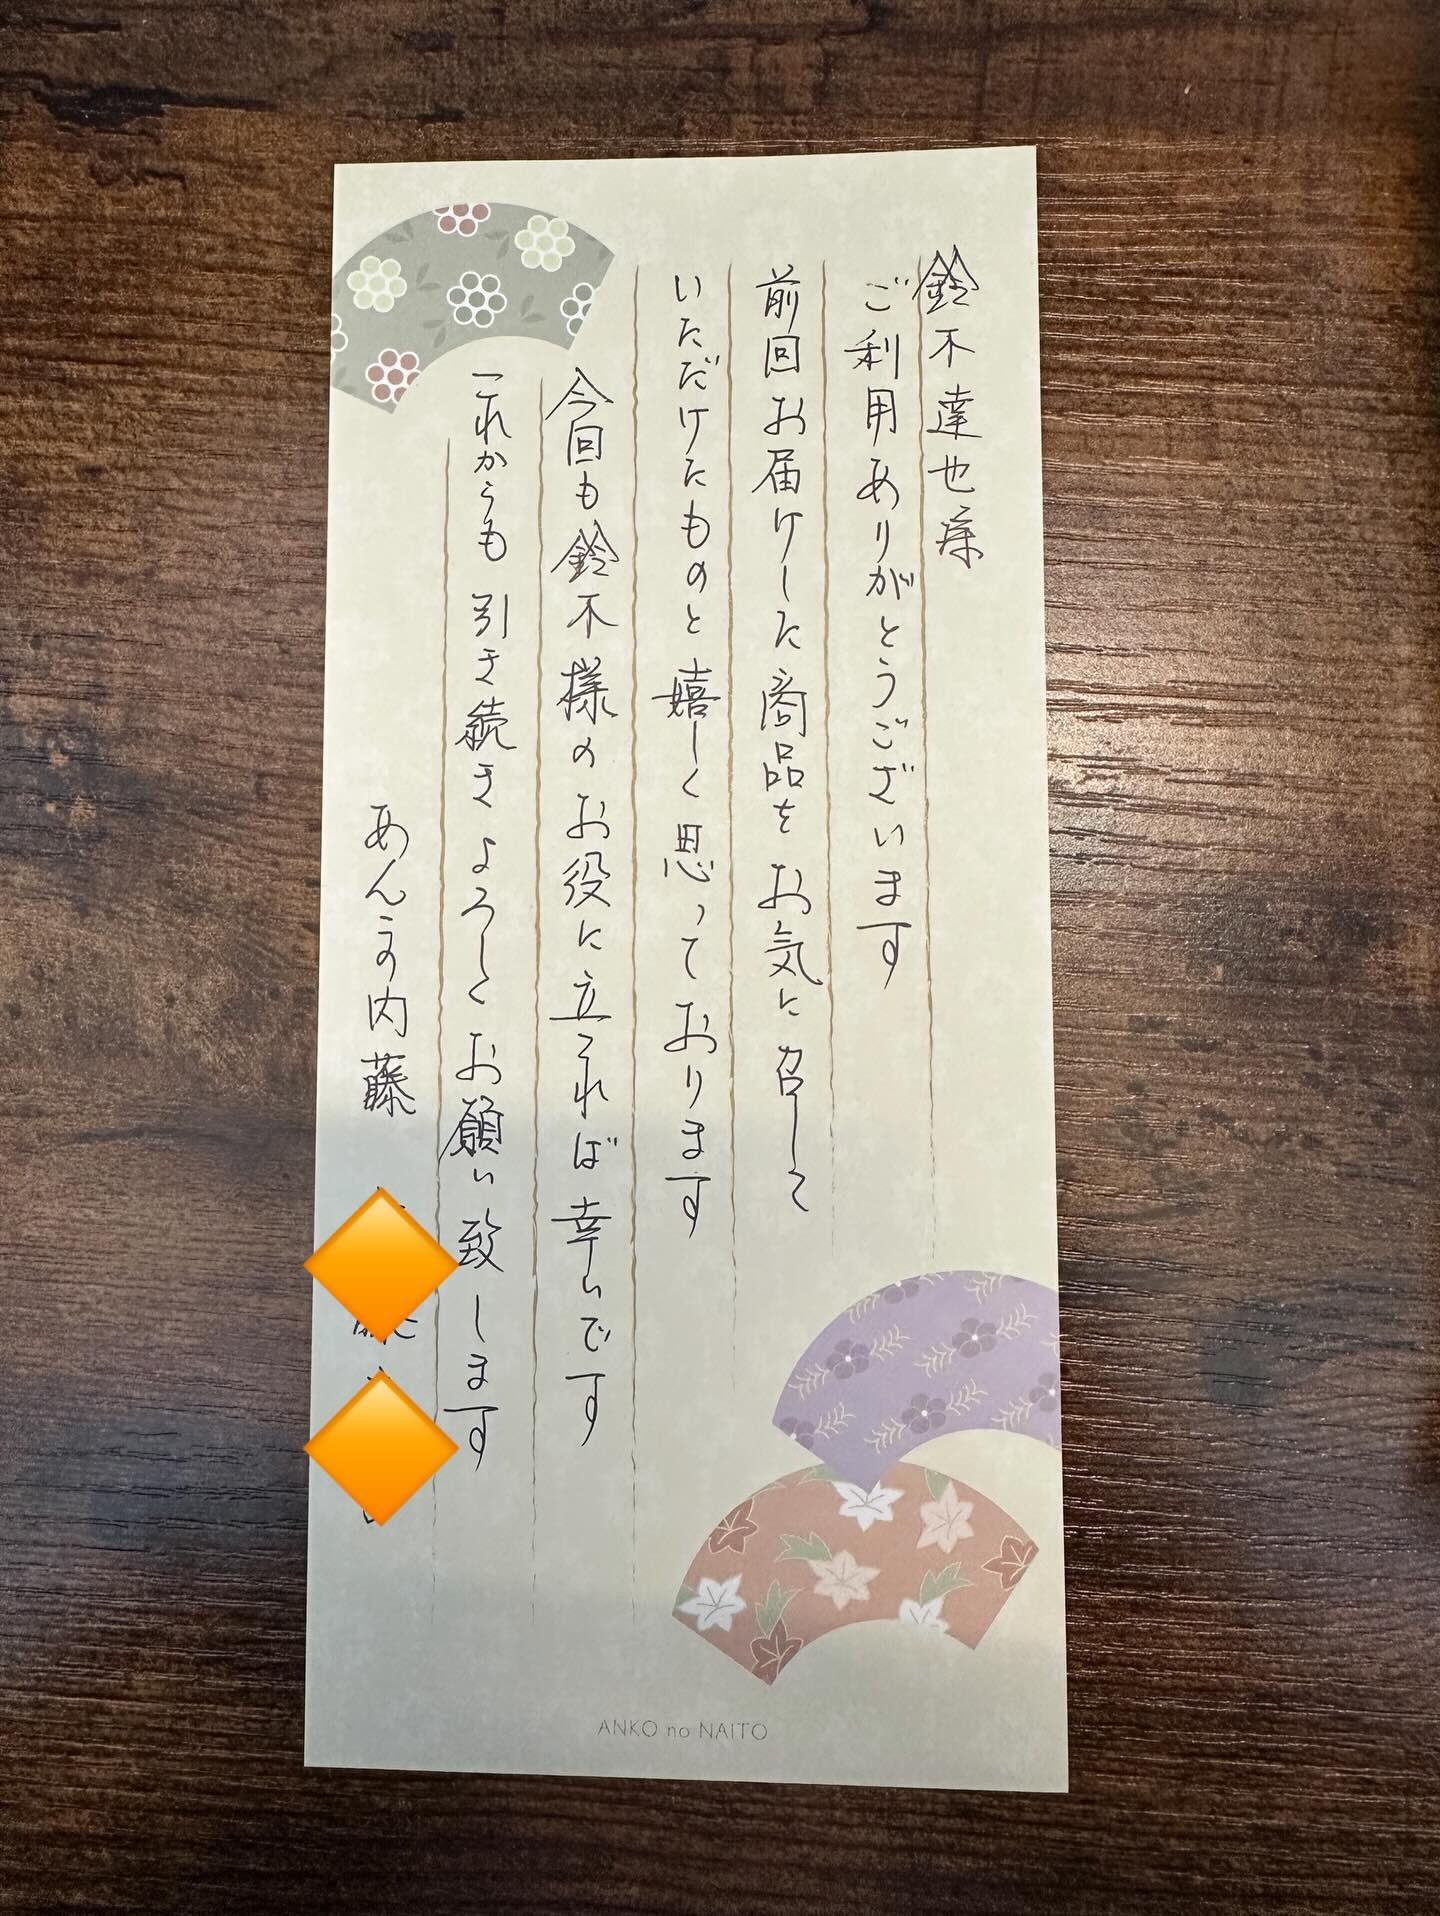 鈴木達也様
ご利用ありがとうございます
前回お届けした商品をお気に召して
いただけたものと嬉しく思っております
今回も鈴木様のお役に立てれば幸いです
これからも引き続きよろしくお願い致します
あんこの内藤
ANKO no NAITO